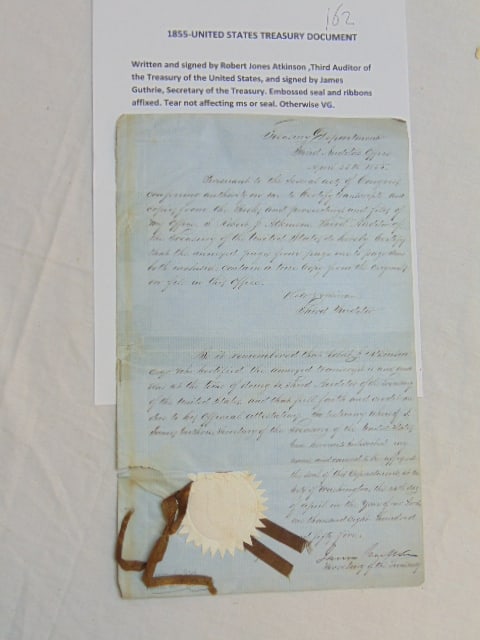 162
1855-UNITED STATES TREASURY DOCUMENT
Written and signed by Robert Jones Atkinson ,Third Auditor of
the Treasury of the United States, and signed by James
Guthrie, Secretary of the Treasury. Embossed seal and ribbons
affixed. Tear not affecting ms or seal. Otherwise VG.
Treasury Department
Third Auditor's Office
April 1855.
Pursuant to the several acts of Congress
conferring authority on me to certify transcripts and
copies from the books and proceedings and files of
my office, I Robert J. Atkinson Third Auditor of
the Treasury of the United States, do hereby certify
that the annexed pages from page one to page
both inclusive, contain a true copy from the original
on file in this Office.
Third Auditor
Be it remembered that Robert J. Atkinson
Esqr. who certified the annexed transcript is now, and
was at the time of doing so Third Auditor of the Treasury
of the United States, and that full faith and credit are
due to his Official attestations. In testimony whereof I,
James Guthrie, Secretary of the Treasury of the United States,
have hereunto subscribed my
name, and caused to be affixed
the seal of this Department, at the
City of Washington, this day
of April in the Year of our Lord
one thousand eight hundred
and fifty five.
James Guthrie
Secretary of the Treasury